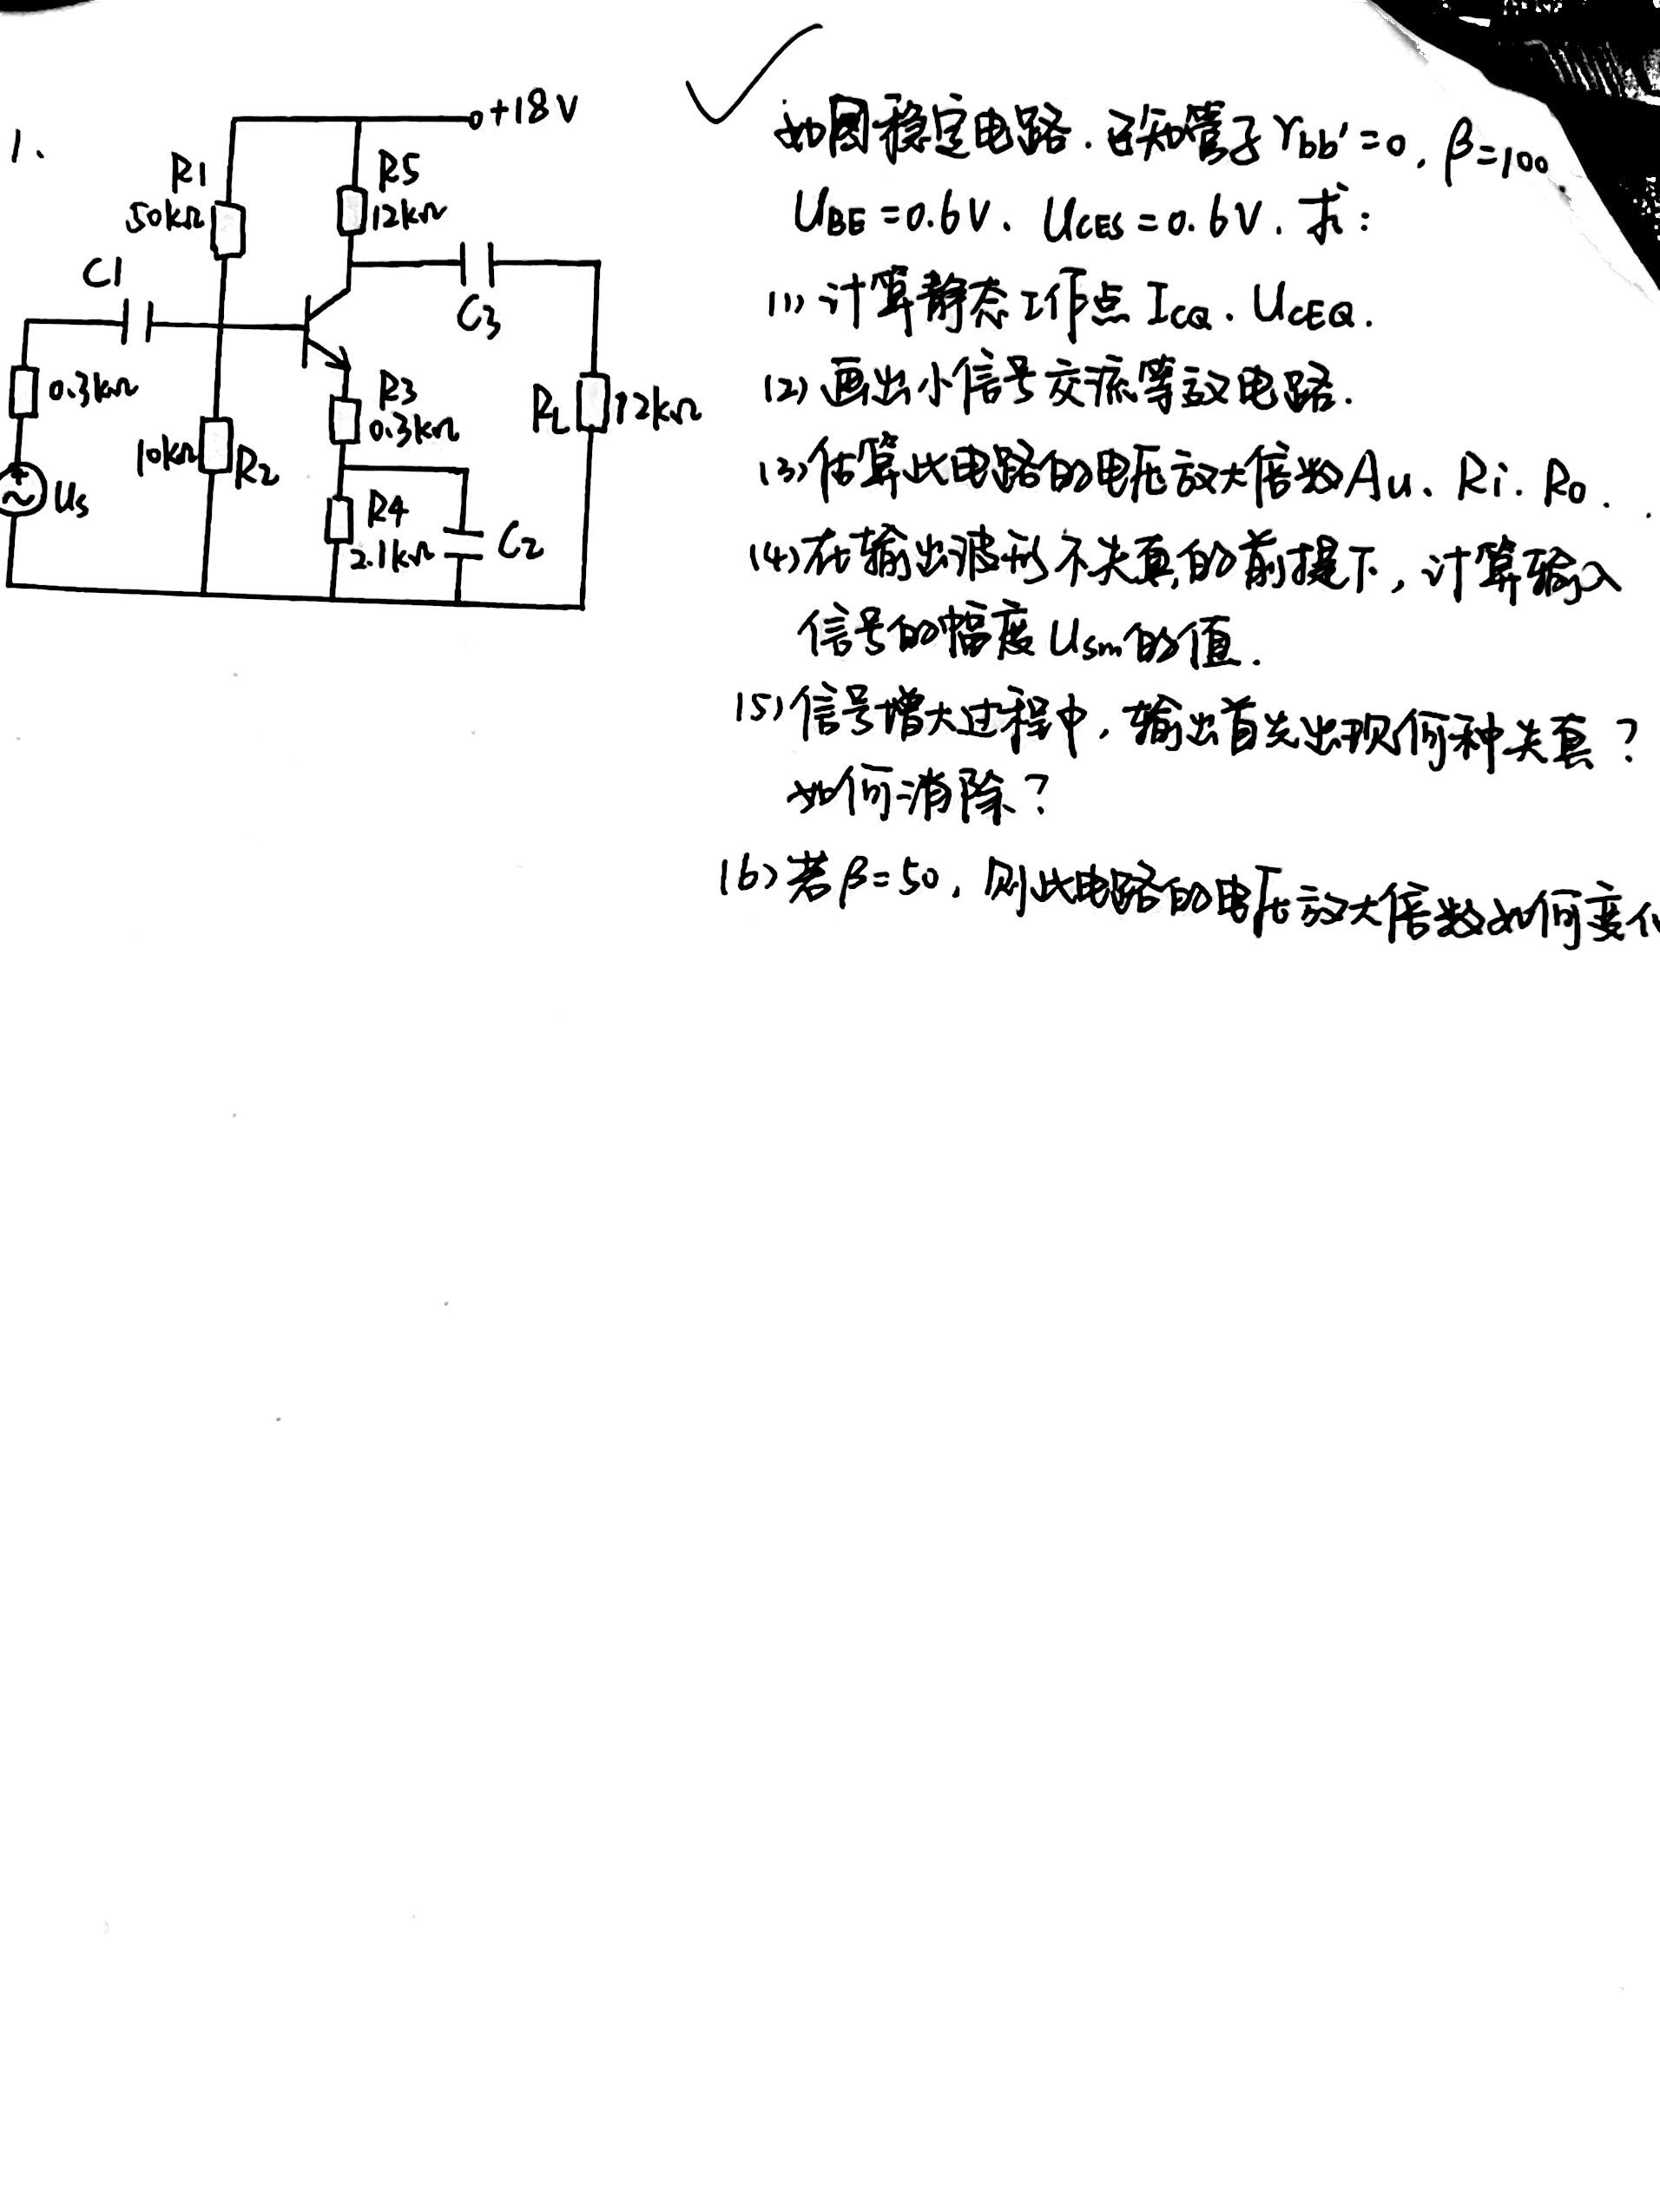 1.
+18V
R1
50kΩ
R5
12kΩ
C1
C3
0.3kΩ
R3
0.3kΩ
RL
12kΩ
10kΩ
R2
Us
R4
2.1kΩ
C2
如图稳定电路.已知管子rbb'=0,β=100
UBE=0.6V、UCES=0.6V.求:
(1)计算静态工作点ICQ.UCEQ.
(2)画出小信号交流等效电路.
(3)估算此电路的电压放大倍数Au、Ri.Ro.
(4)在输出波形不失真的前提下,计算输入
信号的幅度Usm的值.
(5)信号增大过程中,输出首先出现何种失真?
如何消除?
(6)若β=50,则此电路的电压放大倍数如何变